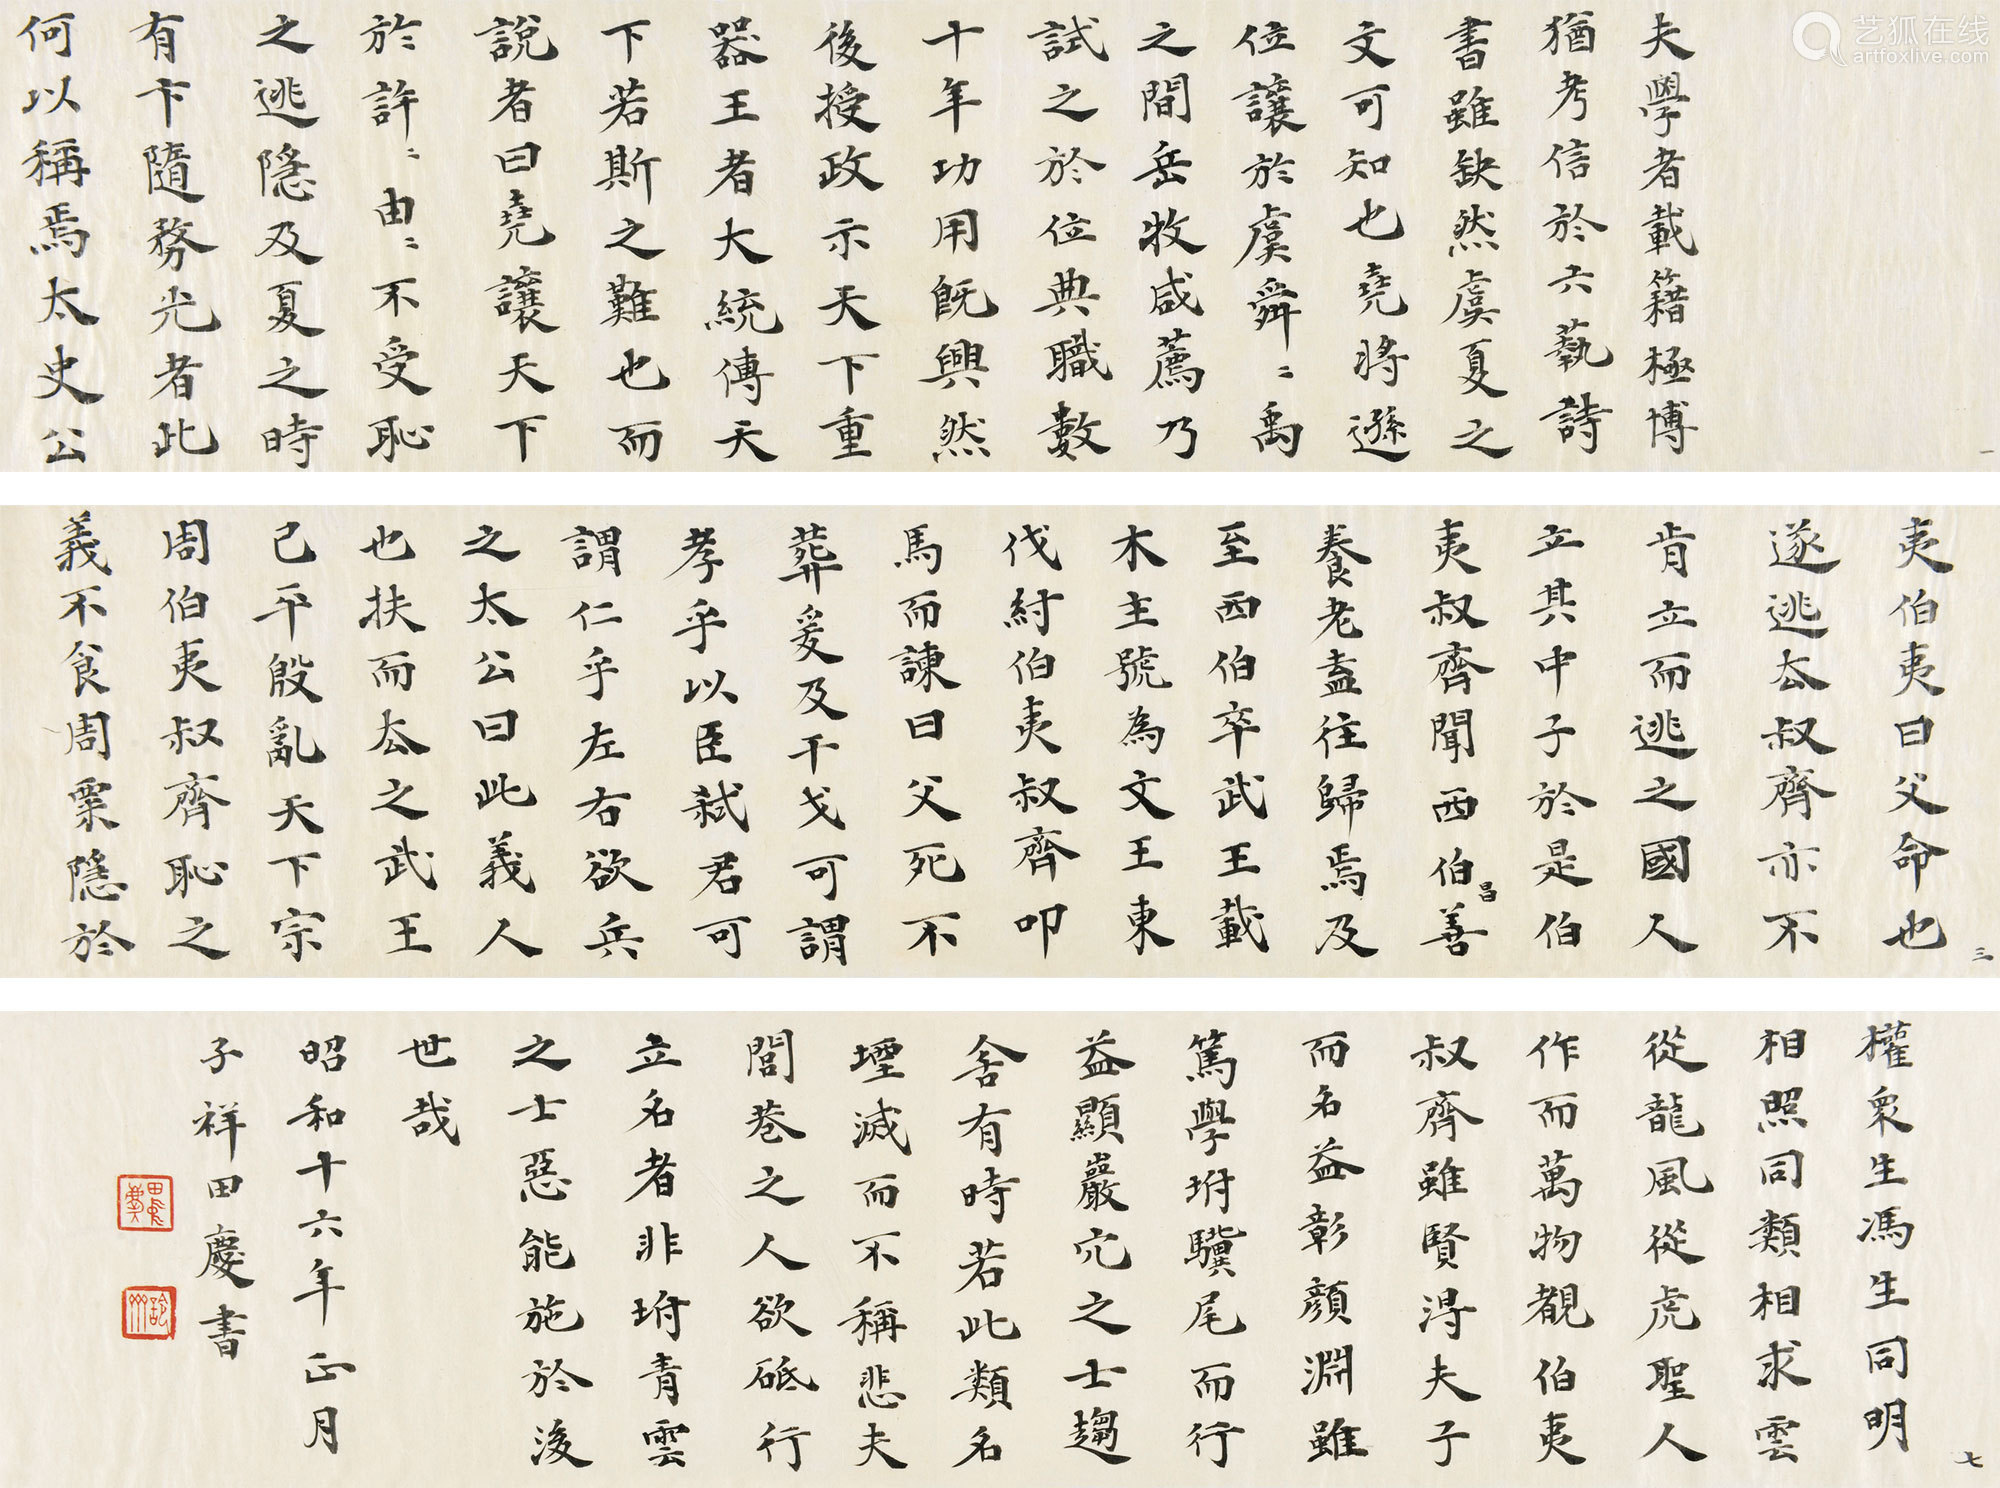 艺狐在线
artfoxlive.com
夫學者載籍極博
猶考信於六藝詩
書雖缺然虞夏之
文可知也堯將遜
位讓於虞舜〻禹
之間岳牧咸薦乃
試之於位典職數
十年功用既興然
後授政示天下重
器王者大統傳天
下若斯之難也而
說者曰堯讓天下
於許〻由〻不受恥
之逃隱及夏之時
有卞隨務光者此
何以稱焉太史公
一
夷伯夷曰父命也
遂逃去叔齊亦不
肯立而逃之國人
立其中子於是伯
夷叔齊聞西伯昌善
養老盍往歸焉及
至西伯卒武王載
木主號為文王東
伐紂伯夷叔齊叩
馬而諫曰父死不
葬爰及干戈可謂
孝乎以臣弒君可
謂仁乎左右欲兵
之太公曰此義人
也扶而去之武王
已平殷亂天下宗
周伯夷叔齊恥之
義不食周粟隱於
三
權眾生馮生同明
相照同類相求雲
從龍風從虎聖人
作而萬物覩伯夷
叔齊雖賢得夫子
而名益彰顏淵雖
篤學坿驥尾而行
益顯巖穴之士趨
舍有時若此類名
堙滅而不稱悲夫
閭巷之人欲砥行
立名者非坿青雲
之士惡能施於後
世哉
昭和十六年正月
子祥田慶書
七